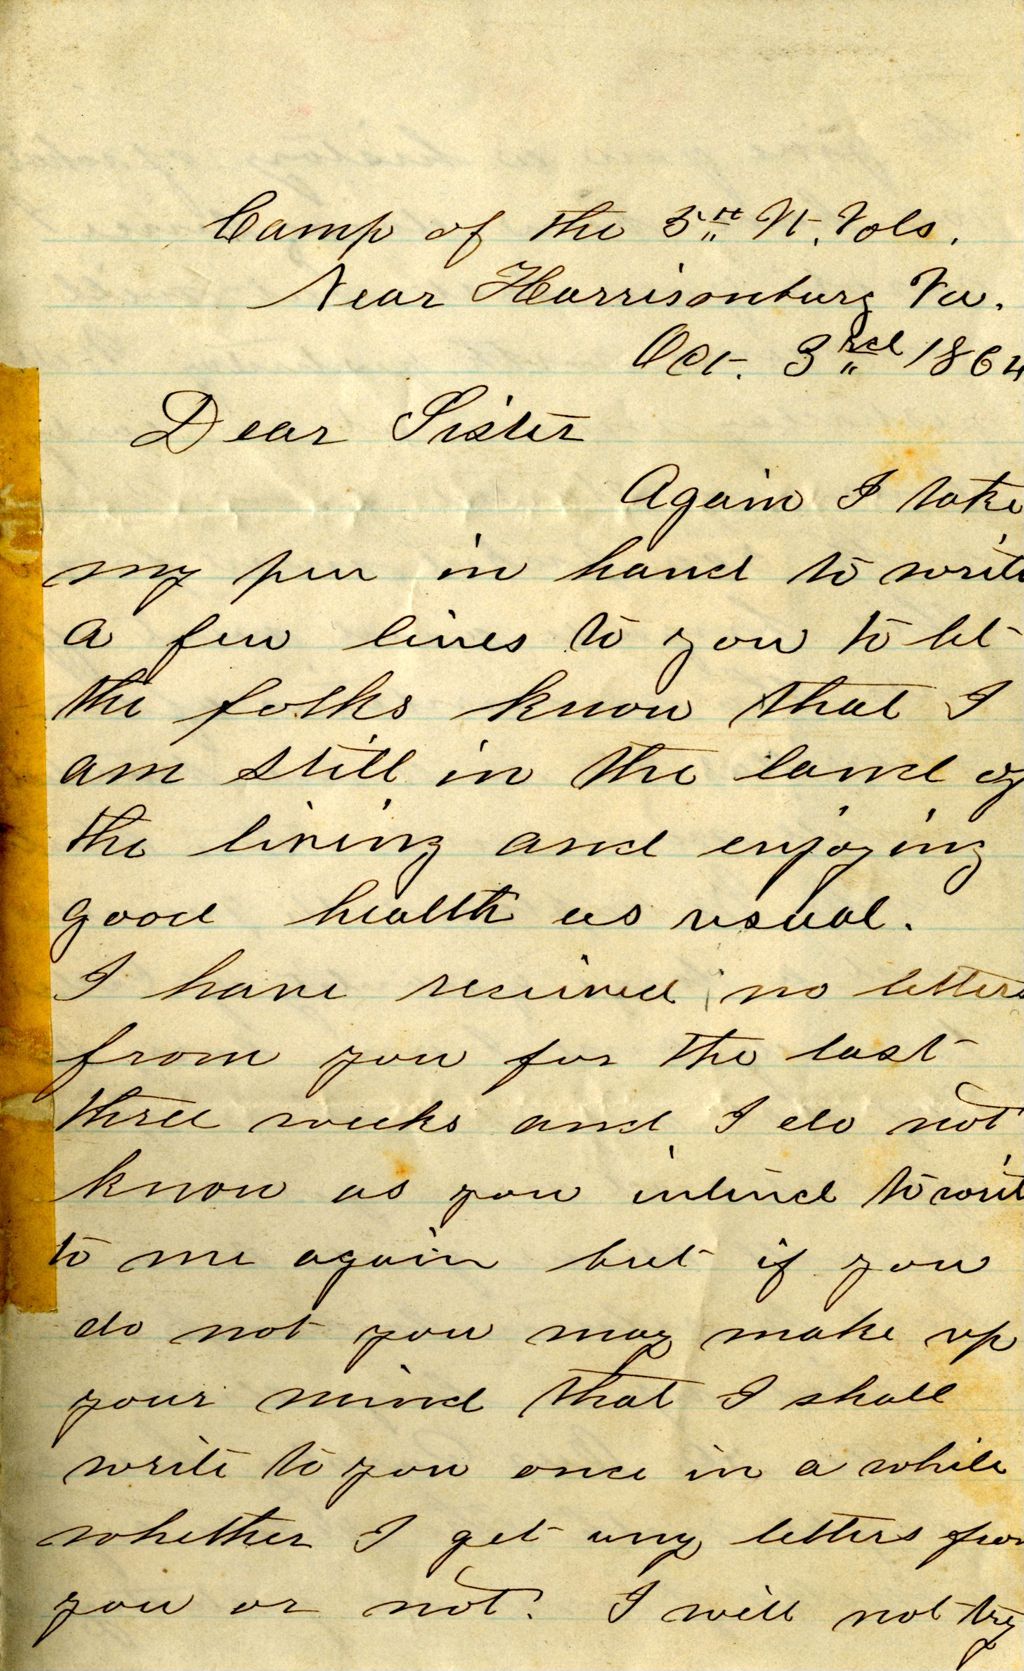 Camp of the 5th Vt. Vols.
Near Harrisonburg Va.
Oct. 3rd 1864
Dear Sister
Again I take
my pen in hand to write
a few lines to you to let
the folks know that I
am still in the land of
the living and enjoying
good health as usual.
I have received no letters
from you for the last
three weeks and I do not
know as you intend to write
to me again but if you
do not you may make up
your mind that I shall
write to you once in a while
whether I get any letters from
you or not. I will not try